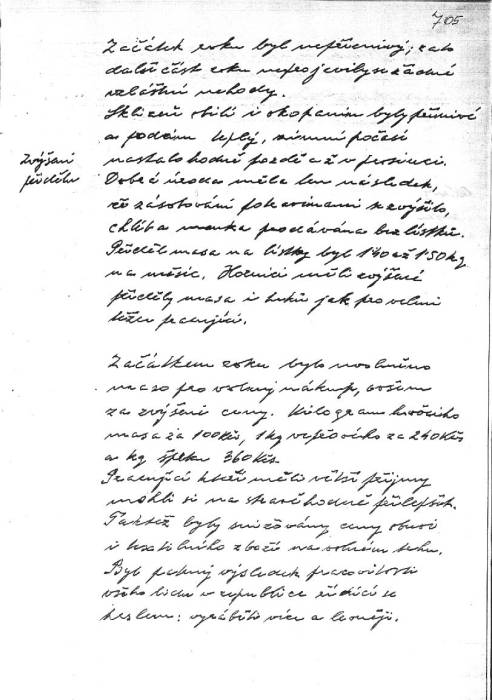 705
Začátek roku byl nepříznivý, zato
další část roku neprojevily se žádné
zvláštní nehody.
Sklizeň obilí i okopanin byly příznivé
a podzim teplý, zimní počasí
nastalo hodně pozdě až v prosinci.
Zvýšení
přídělu
Dobrá úroda měla ten následek,
že zásobování potravinami se zvýšilo,
chléb a mouka prodávána bez lístků.
Příděl masa na lístky byl 1'40 až 1'50 kg
na měsíc. Horníci měli zvýšené
příděly masa i tuků jak pro velmi
těžce pracující.
Začátkem roku bylo uvolněno
maso pro volný nákup, ovšem
za zvýšené ceny. Kilogram hovězího
masa za 100 Kčs, 1 kg vepřového za 240 Kčs
a kg špeku 360 Kčs.
Pracující kteří měli větší příjmy
mohli si na stravě hodně přilepšit.
Taktéž byly snižovány ceny obuvi
i textilního zboží na volném trhu.
Byl patrný výsledek pracovitosti
všeho lidu v republice řídící se
heslem: vyrábět více a levněji.